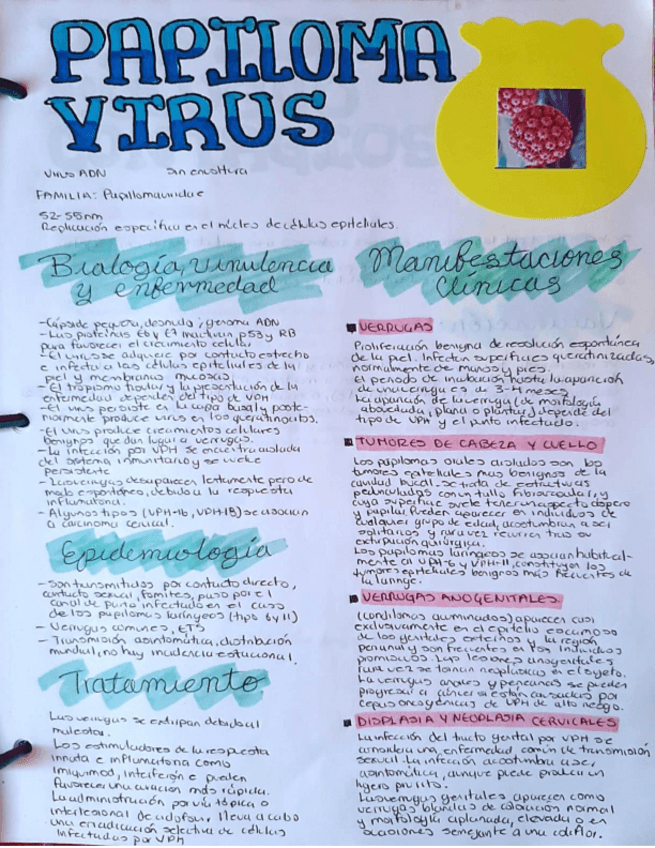 PAPILOMA
VIRUS
Virus ADN sin envoltura
FAMILIA: Papillomaviridae
52-55nm
Replicación específica en el núcleo de células epiteliales.
Biología, virulencia
y enfermedad
-Cápside pequeña, desnuda; genoma ADN
-Las proteínas E6 y E7 inactivan p53 y RB
para favorecer el crecimiento celular
-El virus se adquiere por contacto estrecho
e infecta a las células epiteliales de la
piel y membranas mucosas
-El tropismo tisular y la presentación de la
enfermedad dependen del tipo de VPH
-El virus persiste en la capa basal y poste-
riormente produce virus en los queratinocitos.
-El virus produce crecimientos celulares
benignos que dan lugar a verrugas.
-La infección por VPH se encuentra aislada
del sistema inmunitario y se vuelve
persistente
-Las verrugas desaparecen lentamente pero de
modo espontáneo, debido a la respuesta
inflamatoria.
-Algunos tipos (VPH-16, VPH-18) se asocian
a carcinoma cervical.
Epidemiología
-Son transmitidos por contacto directo,
contacto sexual, fomites, paso por el
canal de parto infectado en el caso
de los papilomas laríngeos (tipo 6 y 11)
-Verrugas comunes, ETS
-Transmisión asintomática, distribución
mundial, no hay incidencia estacional.
Tratamiento
Las verrugas se extirpan debido al
malestar.
Los estimuladores de la respuesta
innata e inflamatoria como
imiquimod, interferón e pueden
favorecer una curación más rápida.
La administración por vía tópica o
intralesional de cidofovir lleva a cabo
una erradicación selectiva de células
infectadas por VPH
Manifestaciones
clínicas
VERRUGAS
Proliferación benigna de resolución espontánea
de la piel. Infectan superficies queratinizadas,
normalmente de manos y pies.
El periodo de incubación hasta la aparición
de una verruga es de 3-4 meses
La aparición de la verruga (de morfología
abovedada, plana o plantar) depende del
tipo de VPH y el punto infectado.
TUMORES DE CABEZA Y CUELLO
Los papilomas orales aislados son los
tumores epiteliales mas benignos de la
cavidad bucal. Se trata de estructuras
pedunculadas con un tallo fibrovascular, y
cuya superficie suele tener un aspecto áspero
y papilar. Pueden aparecer en individuos de
cualquier grupo de edad, acostumbran a ser
solitarios y rara vez recurren tras su
extirpación quirúrgica.
Los papilomas laríngeos se asocian habitual-
mente al VPH-6 y VPH-11, constituyen los
tumores epiteliales benignos más frecuentes de
la laringe.
VERRUGAS ANOGENITALES
(condilomas acuminados) aparecen casi
exclusivamente en el epitelio escamoso
de los genitales externos y la región
perianal y son frecuentes en los individuos
promiscuos. Las lesiones anogenitales
rara vez se tornan neoplásicas en el sujeto.
La verrugas anales y pereanas se pueden
progresar a cáncer si están causadas por
cepas oncogénicas de VPH de alto riesgo.
DISPLASIA Y NEOPLASIA CERVICALES
La infección del tracto genital por VPH se
considera una enfermedad común de transmisión
sexual. La infección acostumbra a ser
asintomática, aunque puede producir un
ligero prurito.
Las verrugas genitales aparecen como
verrugas blandas de coloración normal
y morfología aplanada, elevada o en
ocasiones semejante a una coliflor.